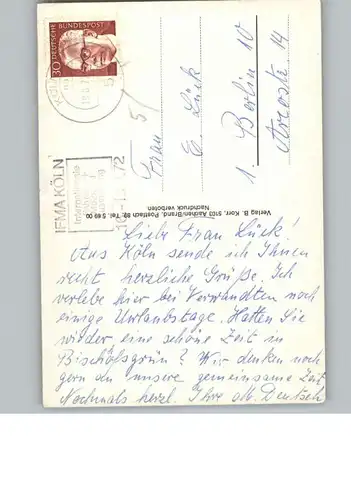 30
DEUTSCHE BUNDESPOST
IFMA KÖLN
Internationale
Frau
E. Lück
1 Berlin 10
Arcostr. 14
Verlag B. Korr, 5103 Aachen/Brand, Postfach 92, Tel. 5 69 00
Nachdruck verboten
Liebe Frau Lück!
Aus Köln sende ich Ihnen
recht herzliche Grüße. Ich
verlebe hier bei Verwandten noch
einige Urlaubstage. Hatten Sie
wieder eine schöne Zeit in
Bischofsgrün? Wir denken noch
gern an unsere gemeinsame Zeit.
Nochmals herzl. Ihre alb. Deutsch